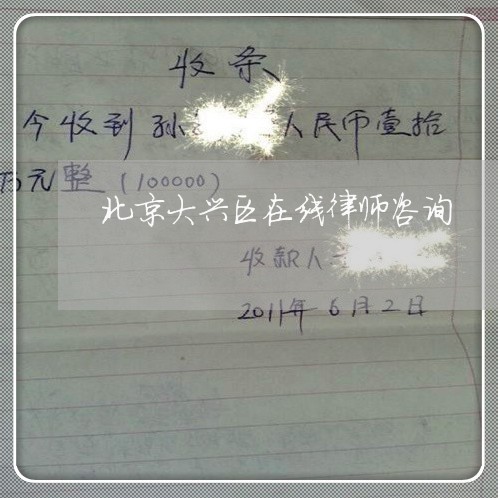 收条
今收到孙 人民币壹拾
万元整（100000）
北京大兴区在线律师咨询
收款人
2011年6月2日